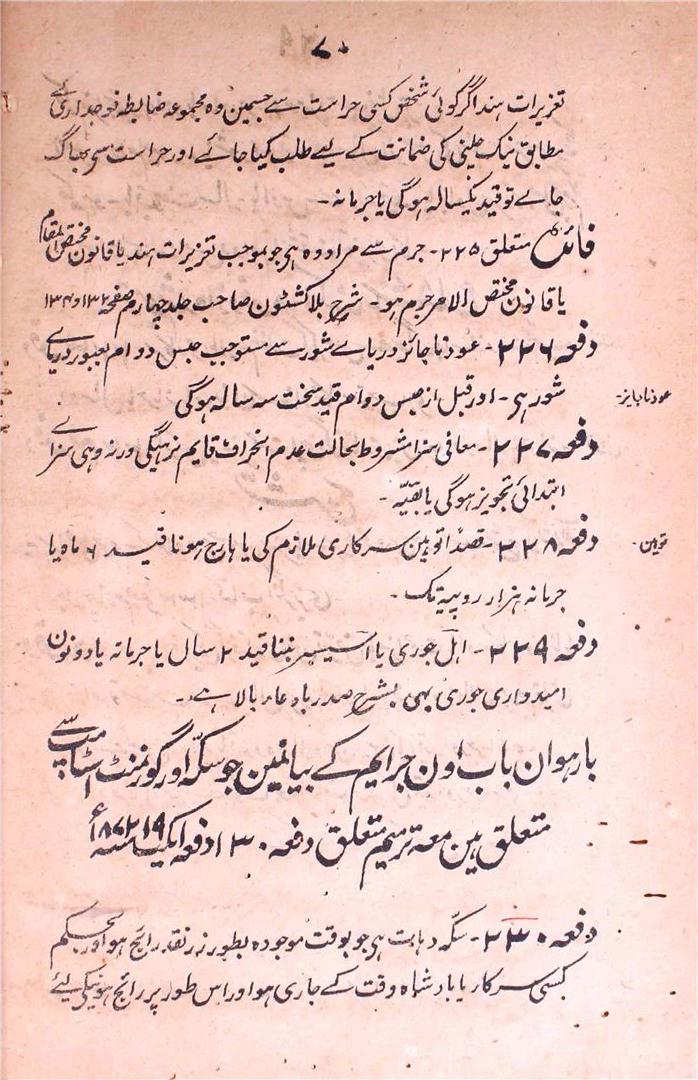 ۷۰
تعزیرات ہند اگر کوئی شخص کسی حراست سے جسمین وہ مجموعہ ضابطہ فوجداری کے
مطابق نیک چلنی کی ضمانت کے لیے طلب کیا جائے اور حراست سے بھاگ
جاے تو قید یکسالہ ہوگی یا جرمانہ -
فائدہ متعلق ۲۲۵- جرم سے مراد وہ ہی جو بموجب تعزیرات ہند یا قانون مختص المقام
یا قانون مختص الامر جرم ہو - شرح بلاکشٹون صاحب جلد چہارم صفحہ ۱۳۲ و ۱۳۴
دفعہ ۲۲۶- عود ناجائز دریاے شور سے مستوجب حبس دوام بعبور دریاے
شور ہی - اور قبل از حبس دوام قید سخت سہ سالہ ہوگی
عود ناجایز-
دفعہ ۲۲۷- معافی سزا مشروط بحالت عدم انحراف قایم نرہیگی ورنہ وہی سزاے
ابتدائی تجویز ہوگی یا بقیہ -
دفعہ ۲۲۸- قصداً توہین سرکاری ملازم کی یا ہارج ہونا قید ۶ ماہ یا
توہین-
جرمانہ ہزار روپیہ تک -
دفعہ ۲۲۹- اہل جوری یا اسیسر بننا قید ۲ سال یا جرمانہ یا دونون
امیدواری جوری بھی بشرح صدر بادعاء بالا ہے -
بارہوان باب اون جرایم کے بیانمین جو سکہ اور گورنمنٹ اسٹامپ سے
متعلق ہین معہ ترمیم متعلق دفعہ ۲۳۰ دفعہ ۱ ایکٹ ۱۹ سنہ ۱۸۷۲ء
دفعہ ۲۳۰- سکہ دہات ہی جو بوقت موجودہ بطور زر نقد رائج ہو اور بحکم
کسی سرکار یا بادشاہ وقت کے جاری ہوا اور اس طور پر رائج ہونیکے لیئے